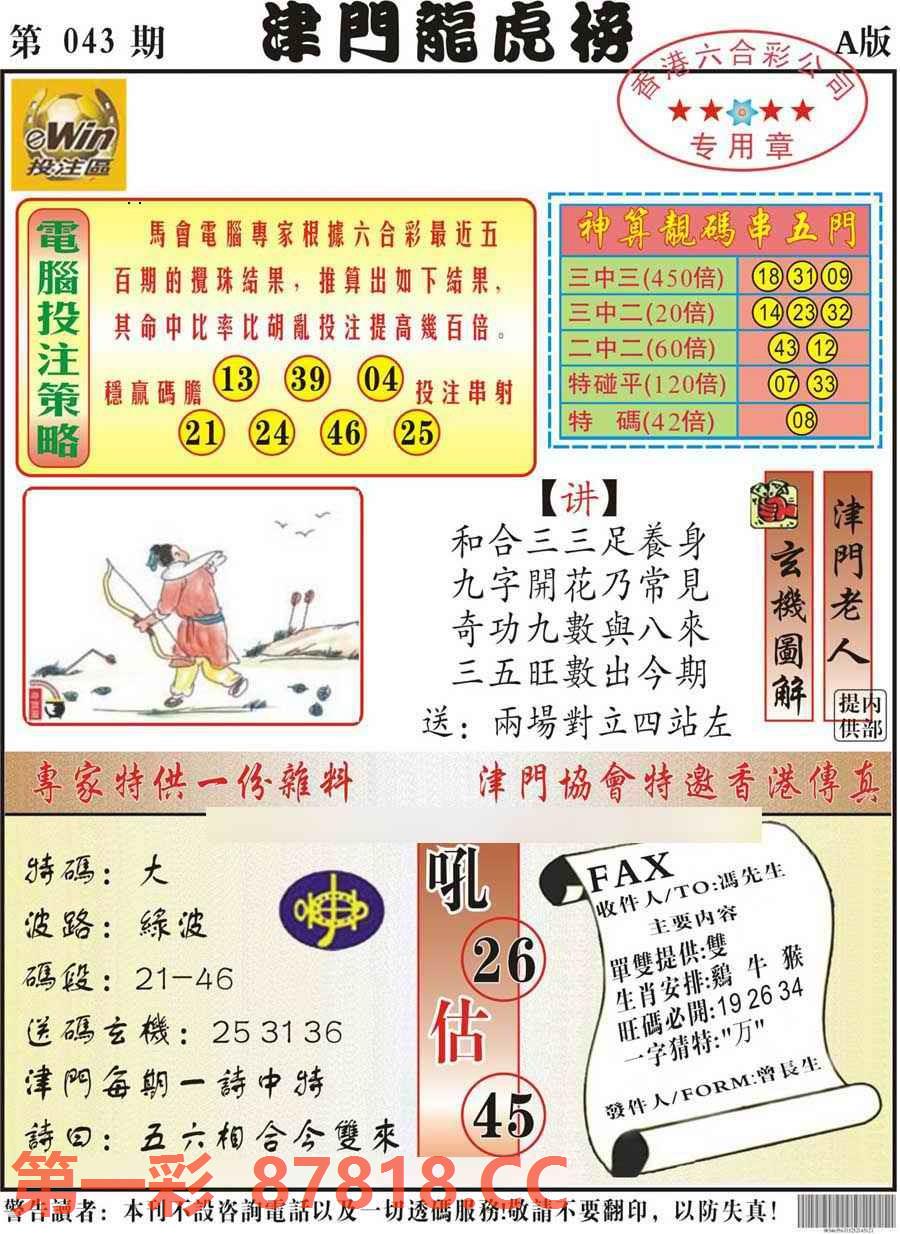 第 043 期
津門龍虎榜
A版
香港六合彩公司
专用章
eWin
投注區
電腦投注策略
馬會電腦專家根據六合彩最近五
百期的攪珠結果，推算出如下結果，
其命中比率比胡亂投注提高幾百倍。
穩贏碼膽 13 39 04 投注串射
21 24 46 25
神算靚碼串五門
三中三(450倍) 18 31 09
三中二(20倍) 14 23 32
二中二(60倍) 43 12
特碰平(120倍) 07 33
特 碼(42倍) 08
【讲】
和合三三足養身
九字開花乃常見
奇功九數與八來
三五旺數出今期
送：兩場對立四站左
玄機圖解
津門老人
内部
提供
專家特供一份雜料
津門協會特邀香港傳真
特碼：大
波路：綠波
碼段：21-46
送碼玄機：25 31 36
津門每期一詩中特
詩曰：五六相合今雙來
吼
26
估
45
FAX
收件人/TO:馮先生
主要内容
單雙提供:雙
生肖安排:鷄 牛 猴
旺碼必開:19 26 34
一字猜特:"万"
發件人/FORM:曾長生
第一彩 87818.CC
警告讀者：本刊不設咨詢電話以及一切透碼服務!敬請不要翻印，以防失真!